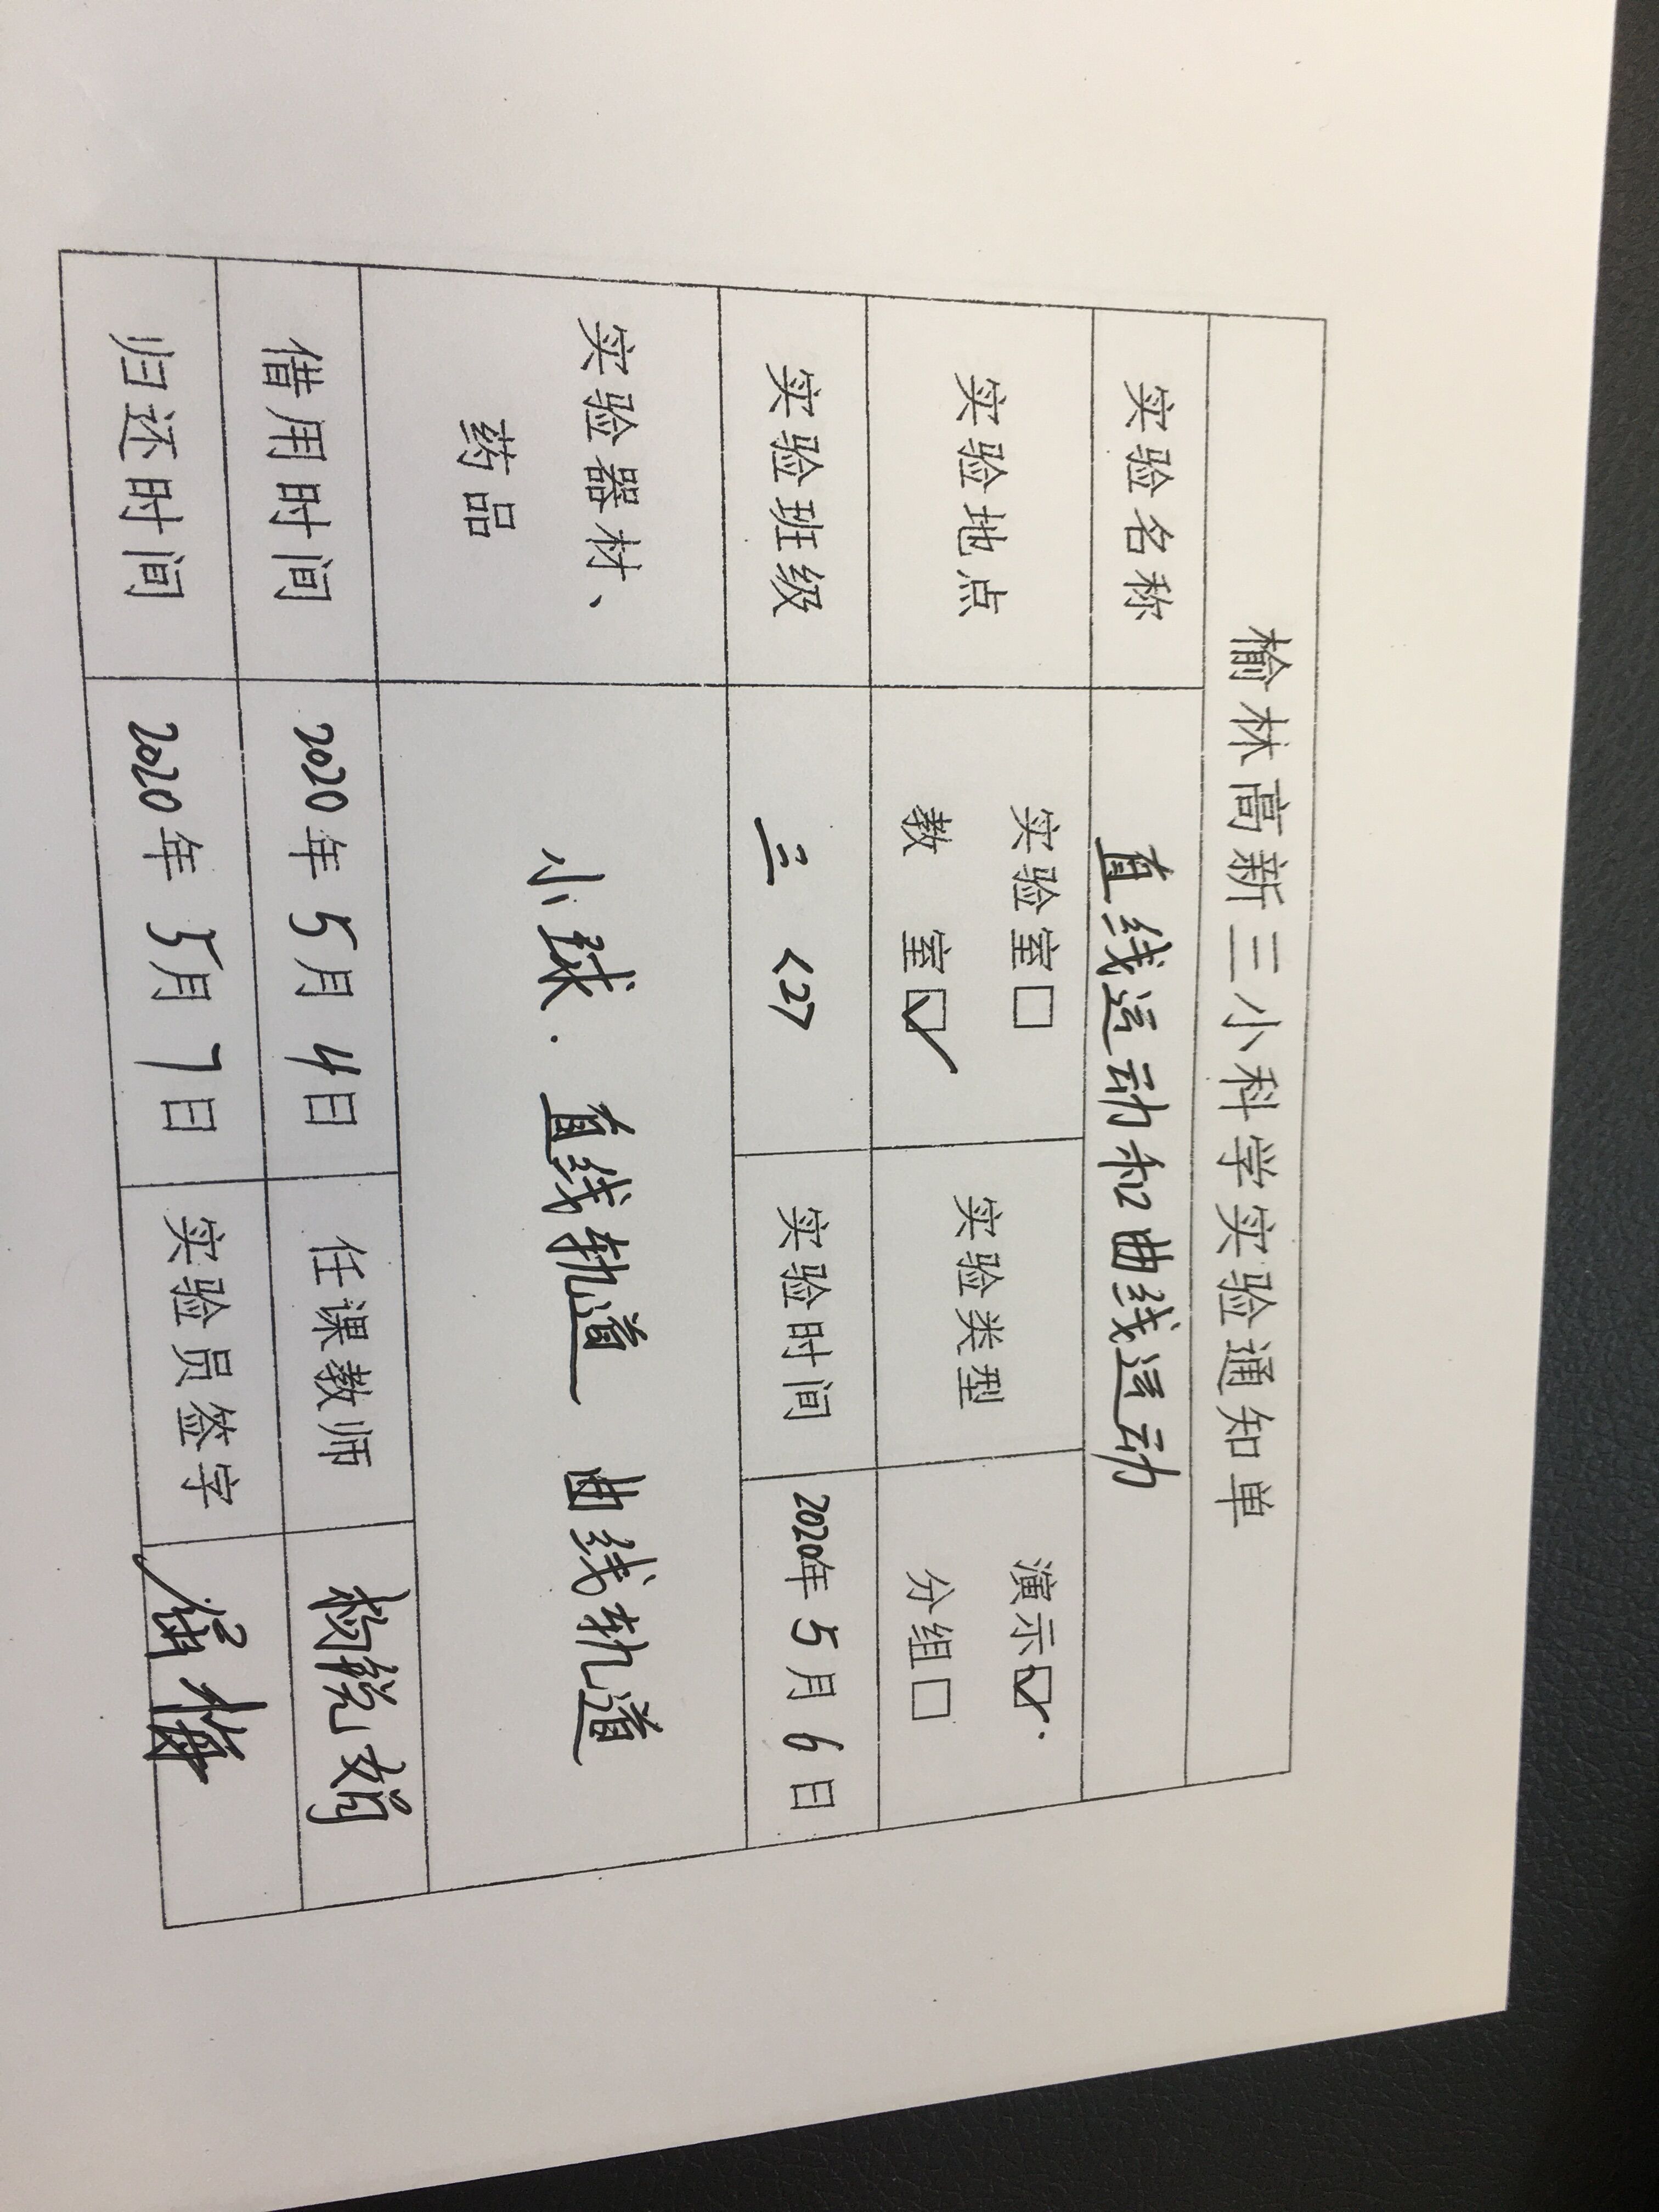 榆林高新三小科学实验通知单
实验名称 直线运动和曲线运动
实验地点 实验室□ 教 室☑ 实验类型 演示☑ 分组□
实验班级 三<2> 实验时间 2020年5月6日
实验器材、药品 小球. 直线轨道 曲线轨道
借用时间 2020年5月4日 任课教师 杨锐娟
归还时间 2020年5月7日 实验员签字